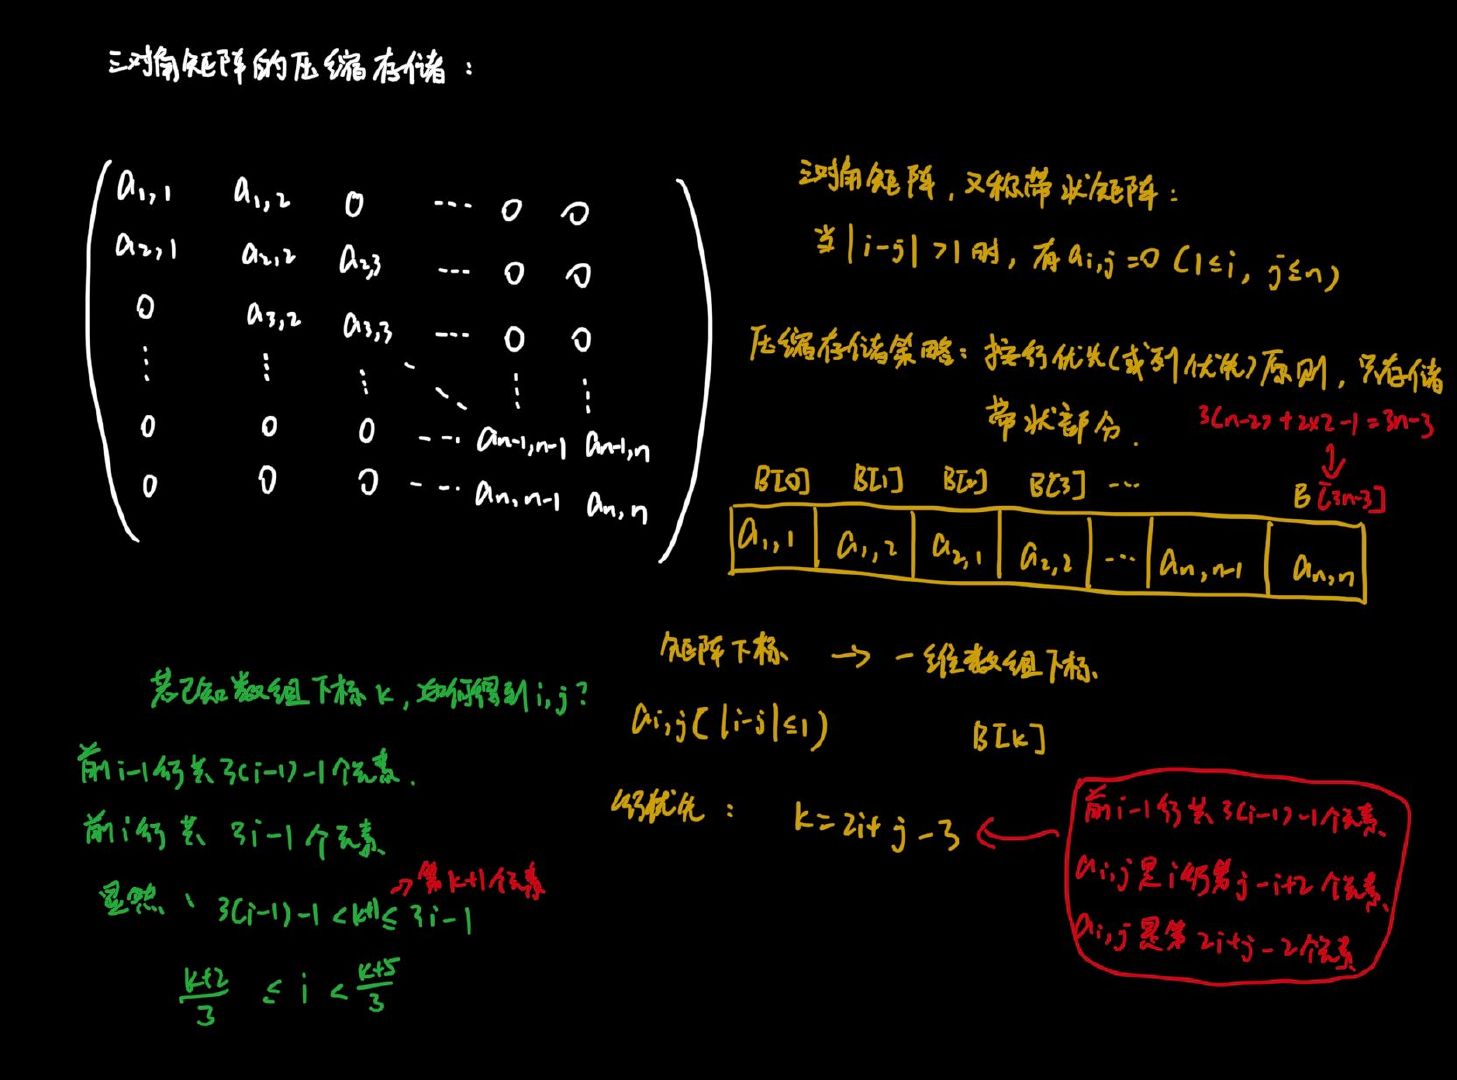 三对角矩阵的压缩存储：
a1,1 a1,2 0 ... 0 0
a2,1 a2,2 a2,3 ... 0 0
0 a3,2 a3,3 ... 0 0
⋮ ⋮ ⋮ ⋱ ⋮ ⋮
0 0 0 ... an-1,n-1 an-1,n
0 0 0 ... an,n-1 an,n
三对角矩阵，又称带状矩阵：
当|i-j|>1时，有ai,j=0（1≤i, j≤n）
压缩存储策略：按行优先（或列优先）原则，只存储
带状部分.
3(n-2)+2×2-1=3n-3
B[0] B[1] B[2] B[3] ... B[3n-3]
a1,1 a1,2 a2,1 a2,2 ... an,n-1 an,n
矩阵下标 → 一维数组下标
ai,j(|i-j|≤1) B[k]
行优先： k=2i+j-3
前i-1行共3(i-1)-1个元素
ai,j是i行第j-i+2个元素
ai,j是第2i+j-2个元素
若已知数组下标k，如何得到i,j？
前i-1行共3(i-1)-1个元素.
前i行共 3i-1个元素
→第k+1个元素
显然、3(i-1)-1<k+1≤3i-1
k+2/3 ≤ i < k+5/3